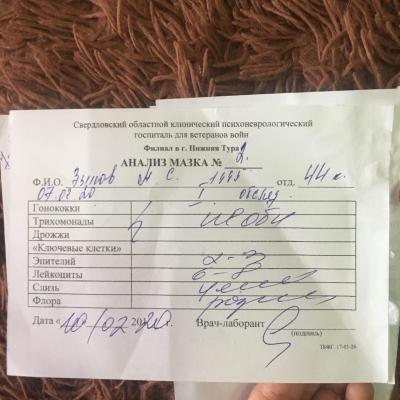 Свердловский областной клинический психоневрологический
госпиталь для ветеранов войн
Филиал в г. Нижняя Тура
АНАЛИЗ МАЗКА № 2.
Ф.И.О. С. отд.
07 02 20 I
Гонококки
Трихомонады необн
Дрожжи
«Ключевые клетки»
Эпителий 2-3
Лейкоциты 6-8
Слизь
Флора
Дата «10/02 2020г. Врач-лаборант
(подпись)